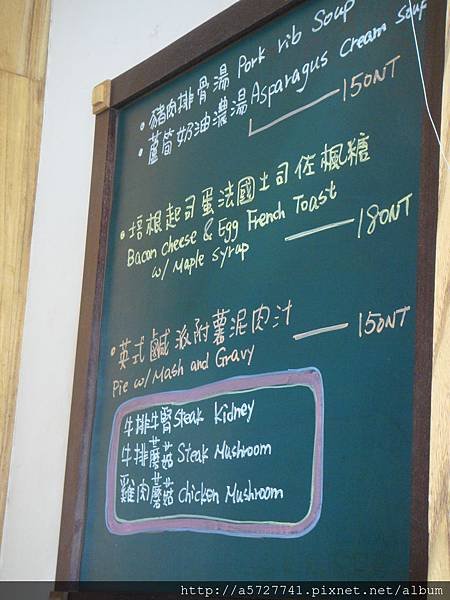 • 豬肉排骨湯 Pork rib Soup
• 蘆筍奶油濃湯 Asparagus Cream Soup
150NT
• 培根起司蛋法國土司佐楓糖
Bacon Cheese & Egg French Toast
w/ Maple syrap
180NT
• 英式鹹派附薯泥肉汁
150NT
Pie w/ Mash and Gravy
牛排牛腎 Steak Kidney
牛排蘑菇 Steak Mushroom
雞肉蘑菇 Chicken Mushroom
http://a5727741.pixnet.net/album